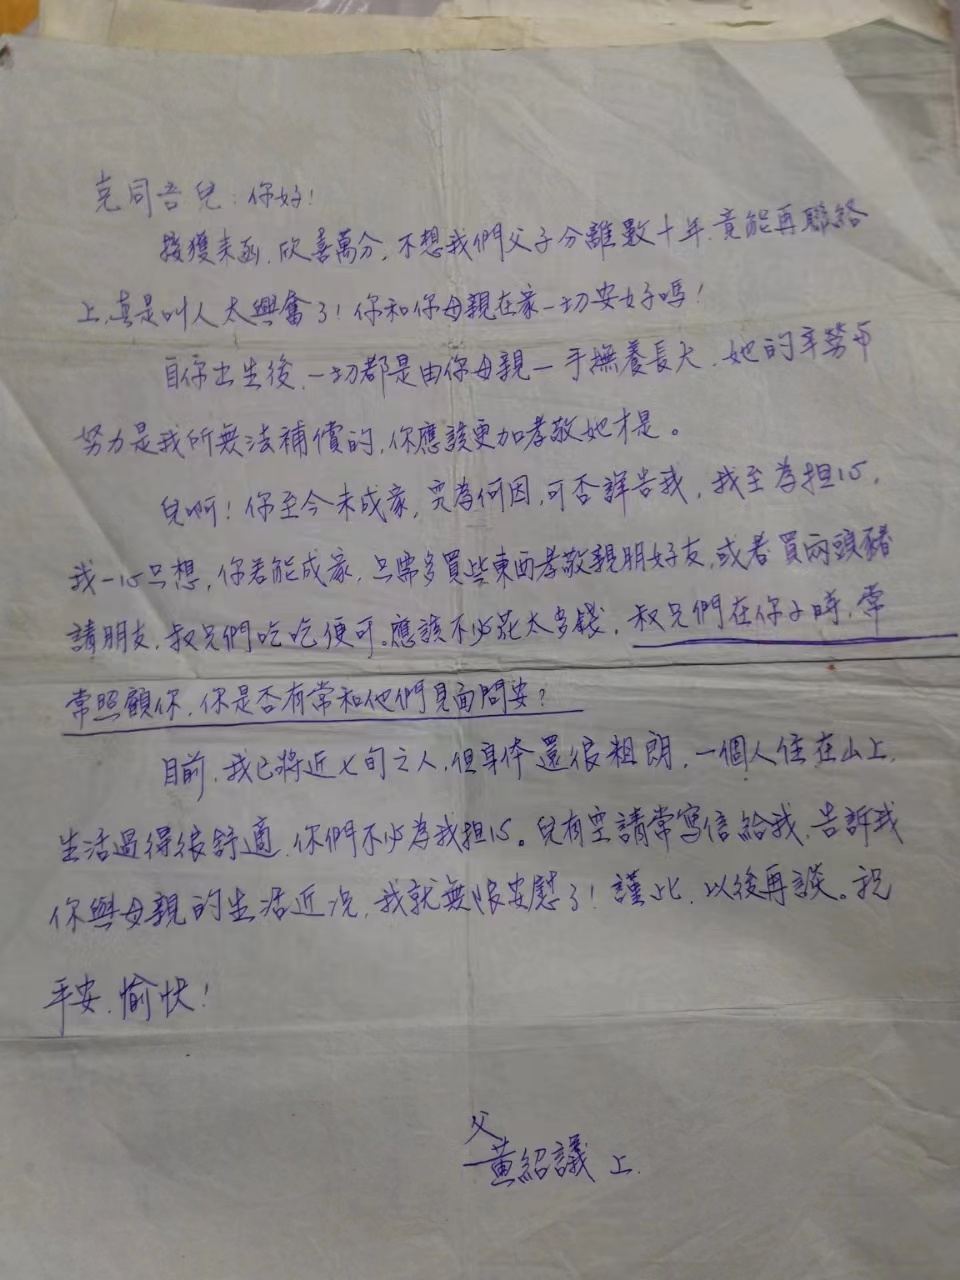 克同吾兒：你好！
接獲來函，欣喜萬分，不想我們父子分離數十年，竟能再聯絡
上，真是叫人太興奮了！你和你母親在家一切安好嗎！
自你出生後，一切都是由你母親一手撫養長大，她的辛勞和
努力是我所無法補償的，你應該更加孝敬她才是。
兒啊！你至今未成家，究為何因，可否詳告我，我至為担心，
我一心只想，你若能成家，只需多買些東西孝敬親朋好友，或者買兩頭豬
請朋友，叔兄們吃吃便可。應該不必花太多錢，叔兄們在你小時，常
常照顧你，你是否有常和他們見面問安？
目前，我已將近七旬之人，但身体還很粗朗，一個人住在山上，
生活過得很舒適，你們不必為我担心。兒有空請常寫信給我，告訴我
你與母親的生活近況，我就無限安慰了！謹此，以後再談。祝
平安，愉快！
父
黃紹議 上.